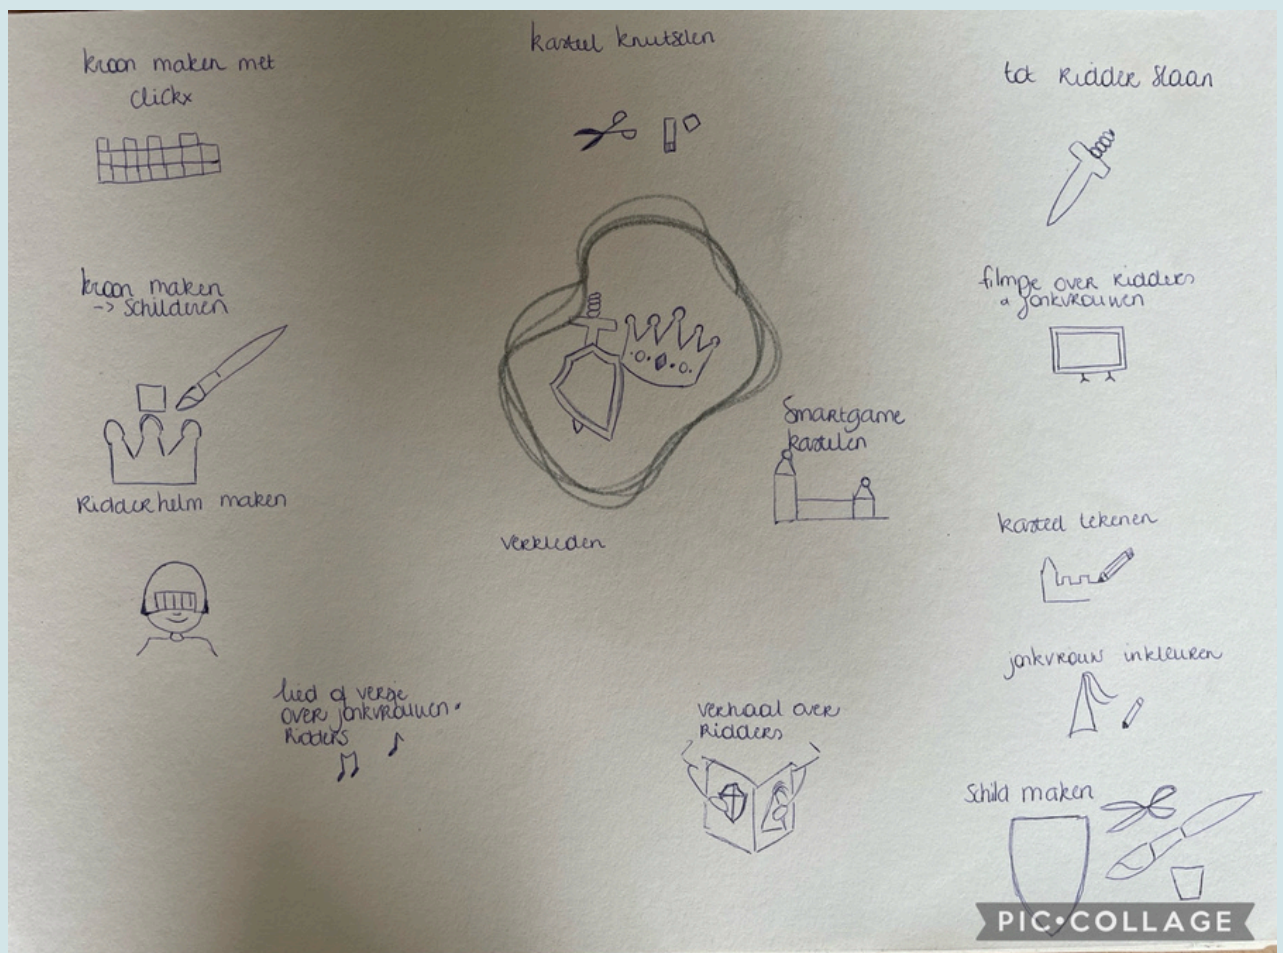 kroon maken met
clickx
kasteel knutselen
tot Ridder slaan
kroon maken
-> schilderen
filmpje over Ridders
& jonkvrouwen
Smartgame
kastelen
Ridderhelm maken
verkleden
kasteel tekenen
jonkvrouw inkleuren
lied of versje
over jonkvrouwen &
Ridders
verhaal over
Ridders
Schild maken
PIC•COLLAGE